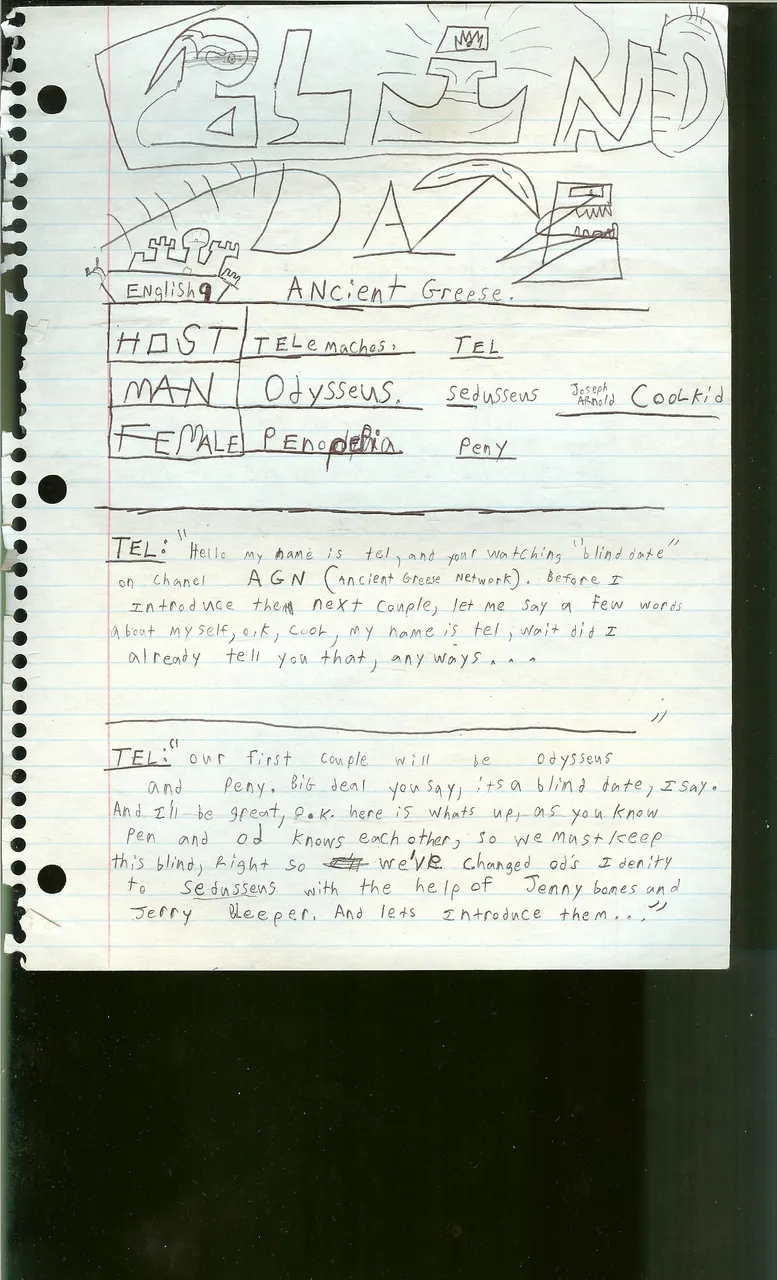 BLIND
DATE
English 9 Ancient Greese.
HOST TELemachos. TEL
MAN Odysseus. Sedusseus Joseph Arnold Coolkid
FEMALE Peny
TEL: "Hello my name is tel, and your watching "blind date"
on Chanel AGN (Ancient Greese Network). Before I
Introduce them next couple, let me say a few words
about myself, o.k, cool, my name is tel, wait did I
already tell you that, any ways...
"
TEL: "our first couple will be odysseus
and Peny. Big deal you say, its a blind date, I say.
And I'll be great, o.k. here is whats up, as you know
Pen and od knows each other, so we must keep
this blind, Right so we've changed od's Idenity
to Sedusseus with the help of Jenny bomes and
Jerry Bleeper. And lets Introduce them..."